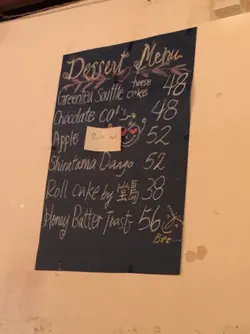 Dessert Menu
Greentea Souffle cheese cake 48
Chocolate ca 48
Apple 52
Shiratama Dango 52
Roll cake by 堂島 38
Honey Butter Toast 56
Bee